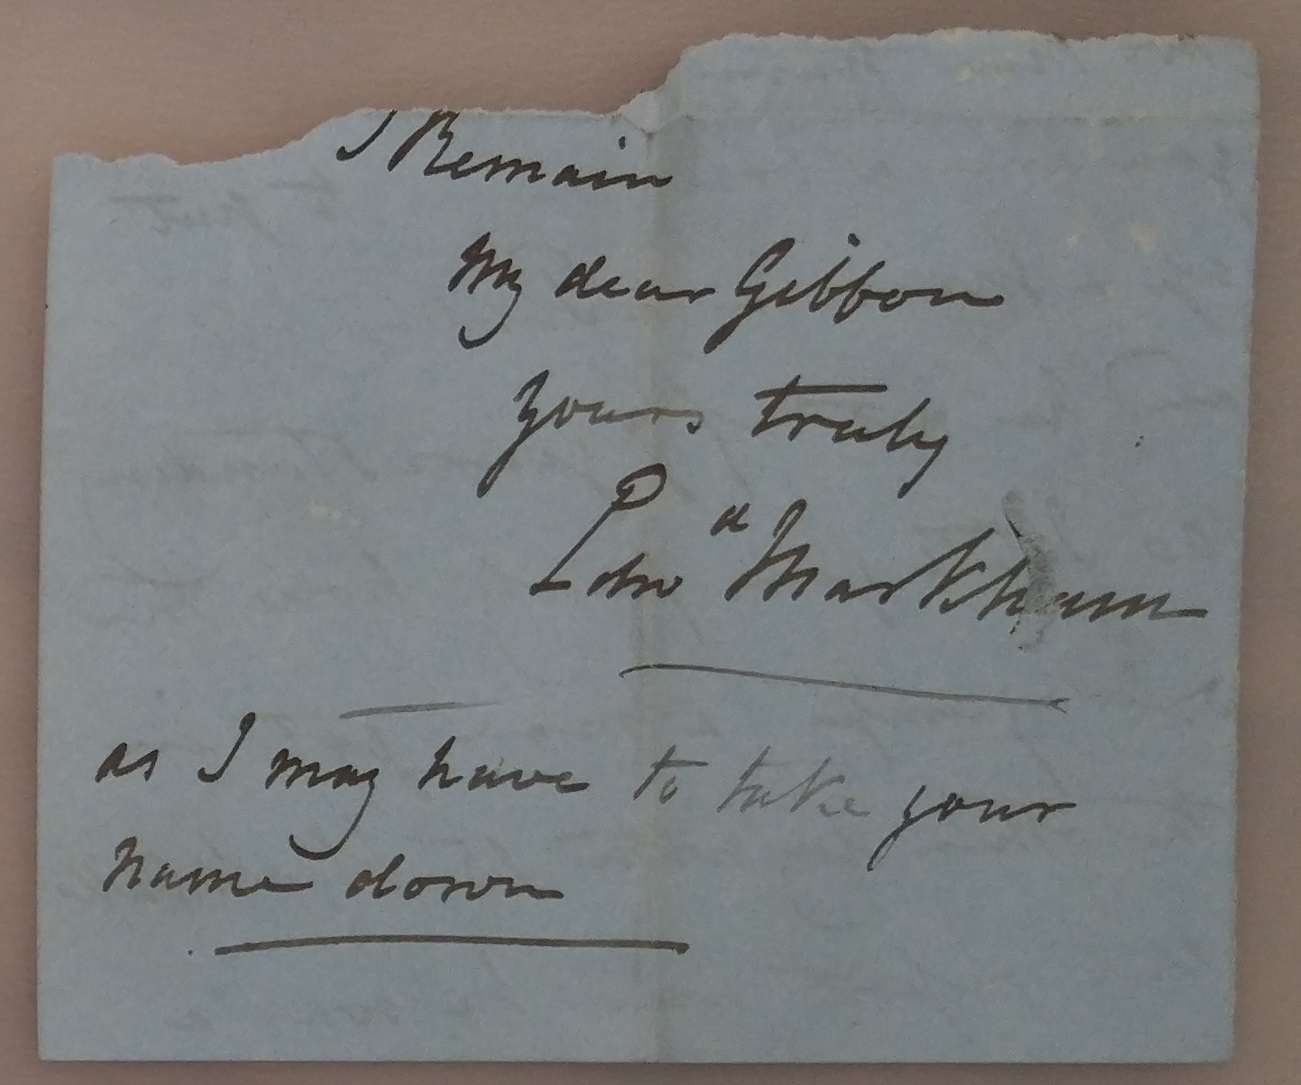 I Remain
My dear Gibbon
yours truly
Edwd Markham
as I may have to take your
name down